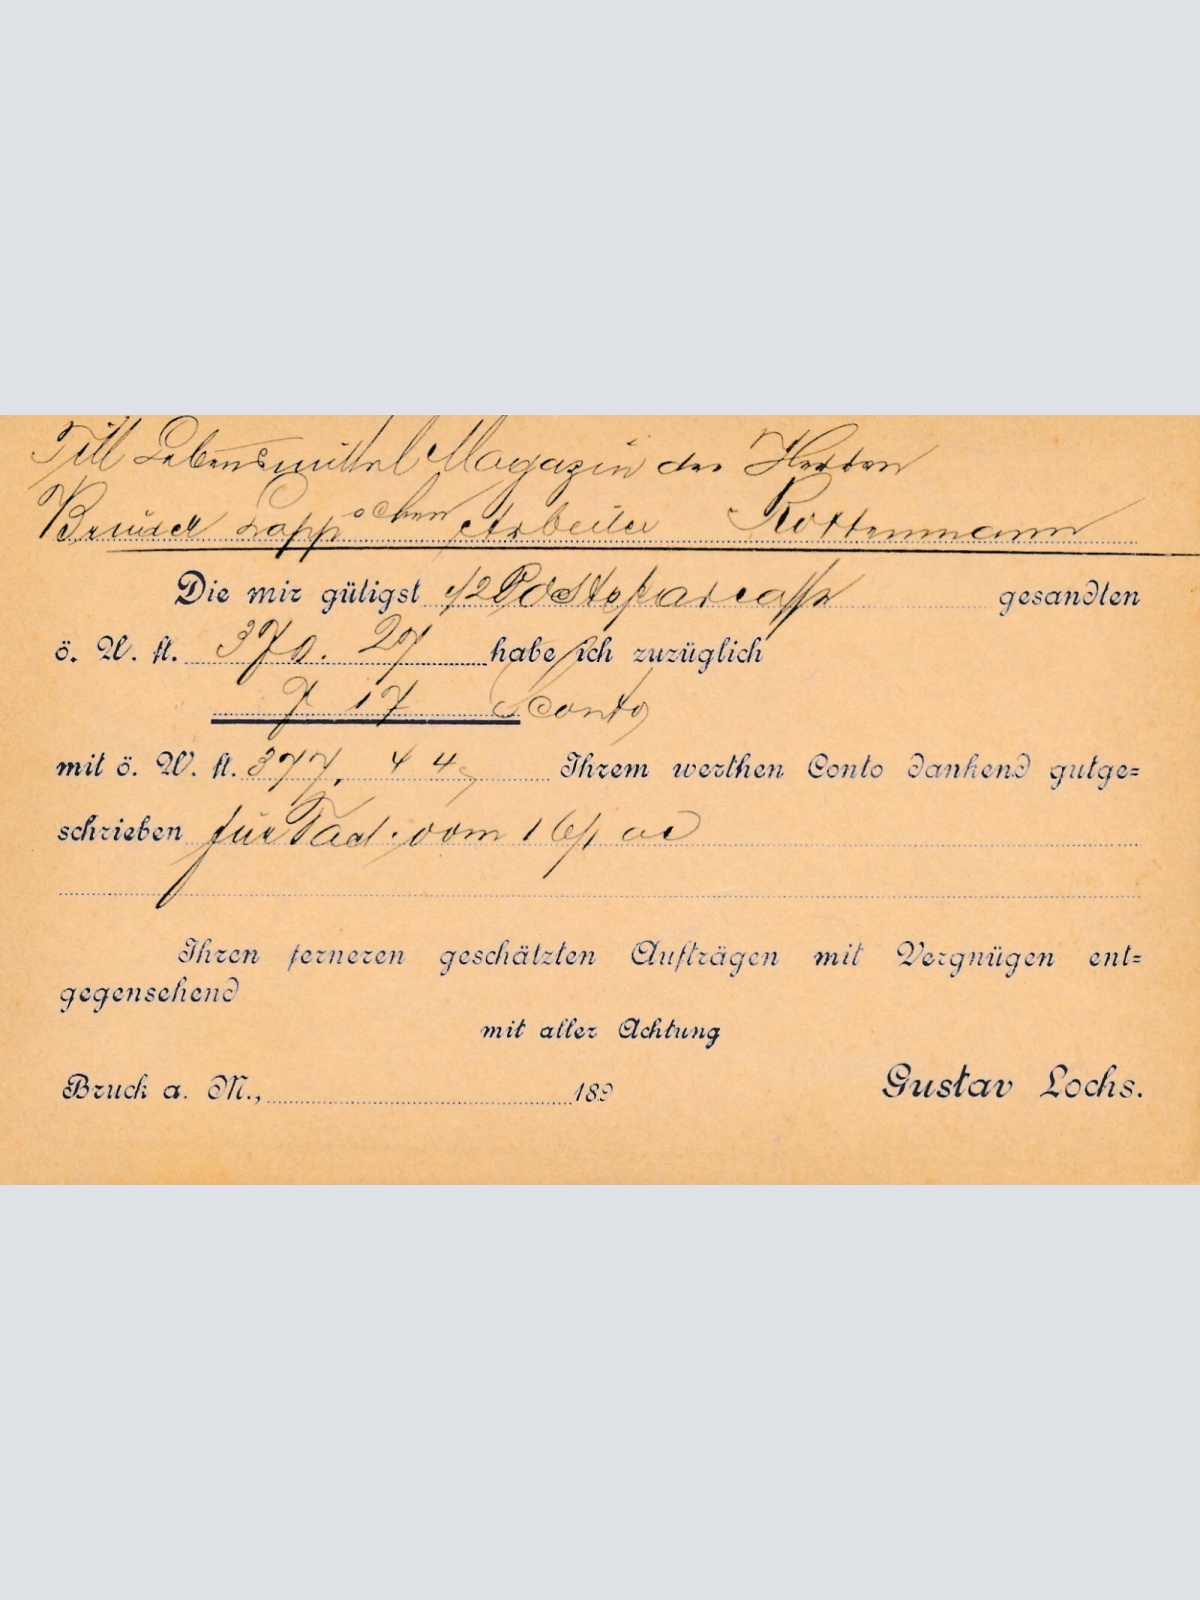 Titl Lebensmittel Magazin der Herren
Brüder Lapp'schen Arbeiter Rottenmann
Die mir gütigst p/ Postsparcasse gesandten
ö. W. fl. 370. 27 habe ich zuzüglich
7 17 Sconto
mit ö. W. fl. 377. 44 Ihrem werthen Conto dankend gutge=
schrieben für Fact. vom 16/1 ac
Ihren ferneren geschätzten Aufträgen mit Vergnügen ent=
gegensehend
mit aller Achtung
Bruck a. M., 189
Gustav Lochs.